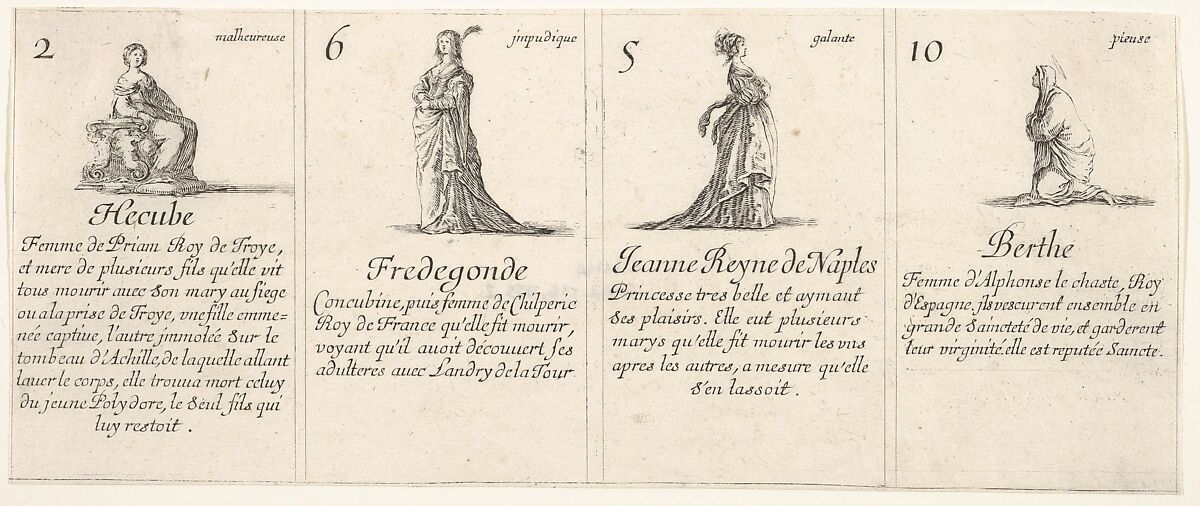 2
malheureuse
Hecube
Femme de Priam Roy de Troye,
et mere de plusieurs fils qu'elle vit
tous mourir avec son mary au siege
ou a la prise de Troye, vne fille emme=
née captiue, l'autre jmmolée sur le
tombeau d'Achille, de laquelle allant
lauer le corps, elle trouua mort celuy
du jeune Polydore, le seul fils qui
luy restoit.
6
jmpudique
Fredegonde
Concubine, puis femme de Chilperic
Roy de France qu'elle fit mourir,
voyant qu'il auoit découuert ses
adulteres auec Landry de la Tour
5
galante
Jeanne Reyne de Naples
Princesse tres belle et aymant
ses plaisirs. Elle eut plusieurs
marys qu'elle fit mourir les vns
apres les autres, a mesure qu'elle
s'en lassoit.
10
pieuse
Berthe
Femme d'Alphonse le chaste, Roy
d'Espagne, jls vescurent ensemble en
grande saincteté de vie, et garderent
leur virginité. elle est reputée Saincte.